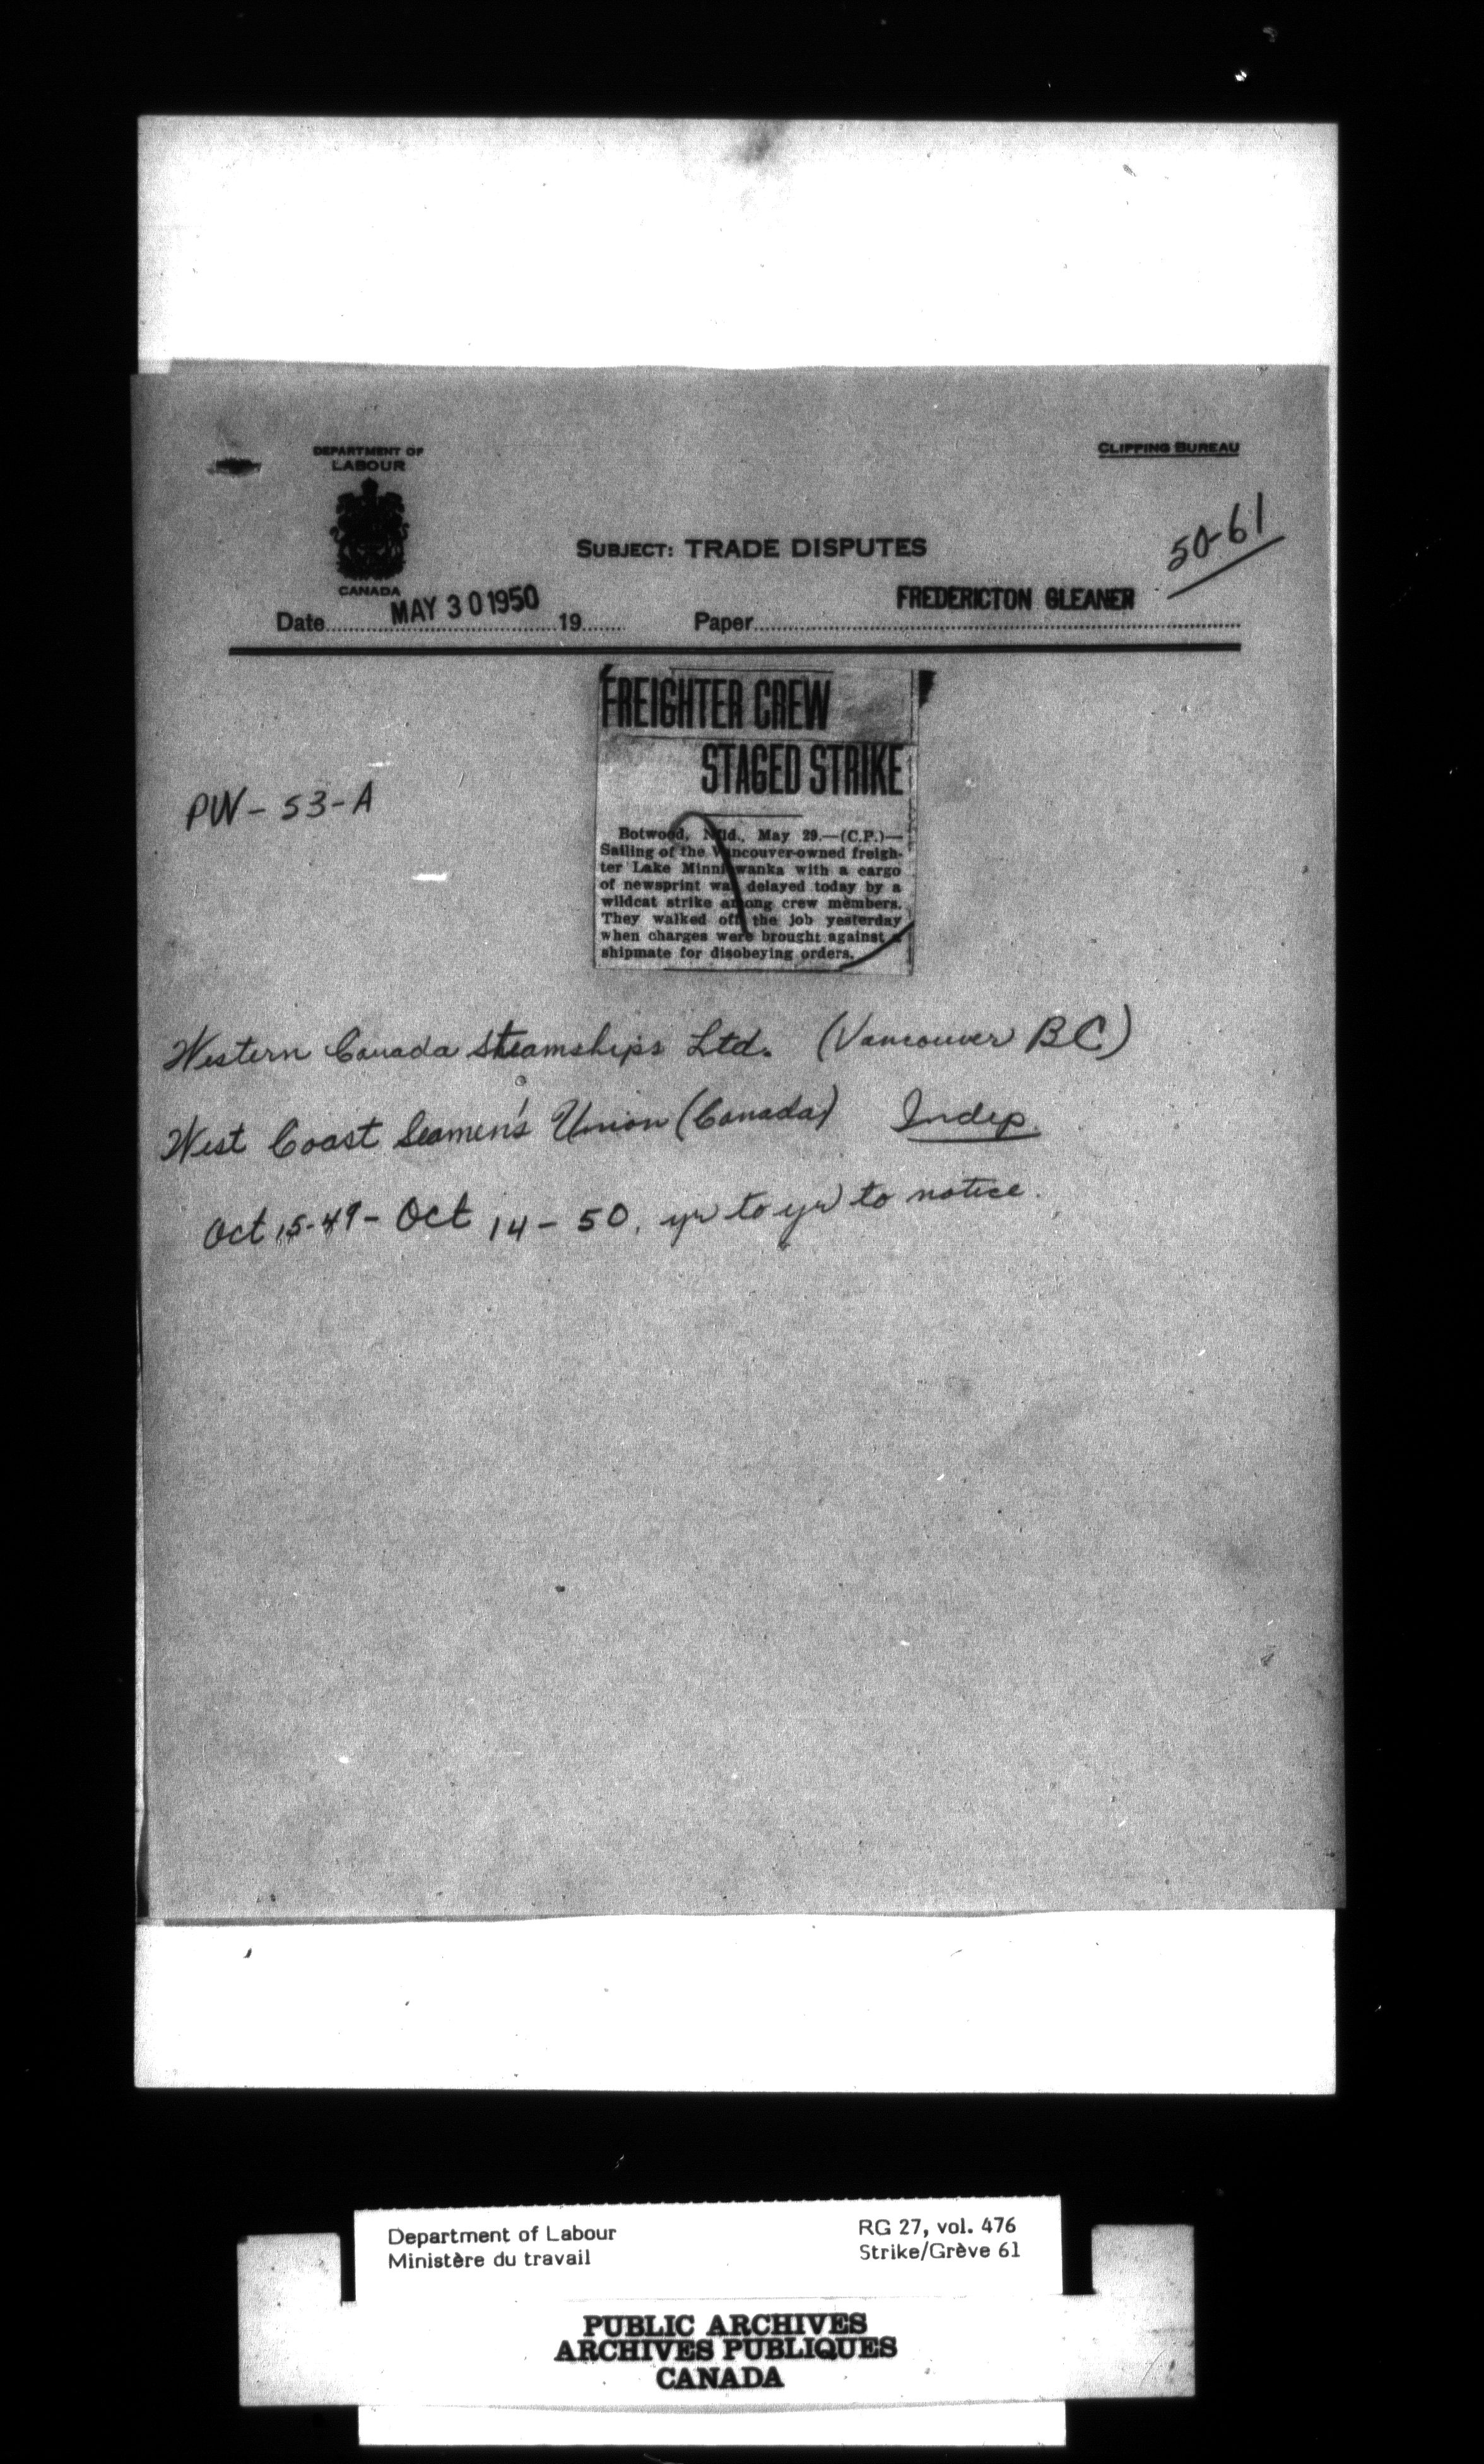 DEPARTMENT OF
LABOUR
CANADA
CLIPPING BUREAU
50-61
SUBJECT: TRADE DISPUTES
Date MAY 30 1950 19
Paper FREDERICTON GLEANER
FREIGHTER CREW
STAGED STRIKE
Botwood, Nfld., May 29.—(C.P.)—
Sailing of the Vancouver-owned freigh-
ter Lake Minnewanka with a cargo
of newsprint was delayed today by a
wildcat strike among crew members.
They walked off the job yesterday
when charges were brought against a
shipmate for disobeying orders.
PW-53-A
Western Canada Steamships Ltd. (Vancouver BC)
West Coast Seamen's Union (Canada) Indep.
Oct 15-49 - Oct 14-50, yr to yr to notice.
Department of Labour
Ministère du travail
RG 27, vol. 476
Strike/Grève 61
PUBLIC ARCHIVES
ARCHIVES PUBLIQUES
CANADA